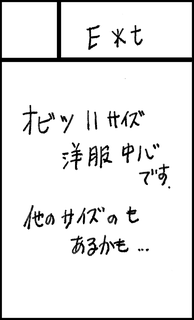 E*t
オビツ11サイズ
洋服中心
です.
他のサイズのも
あるかも...